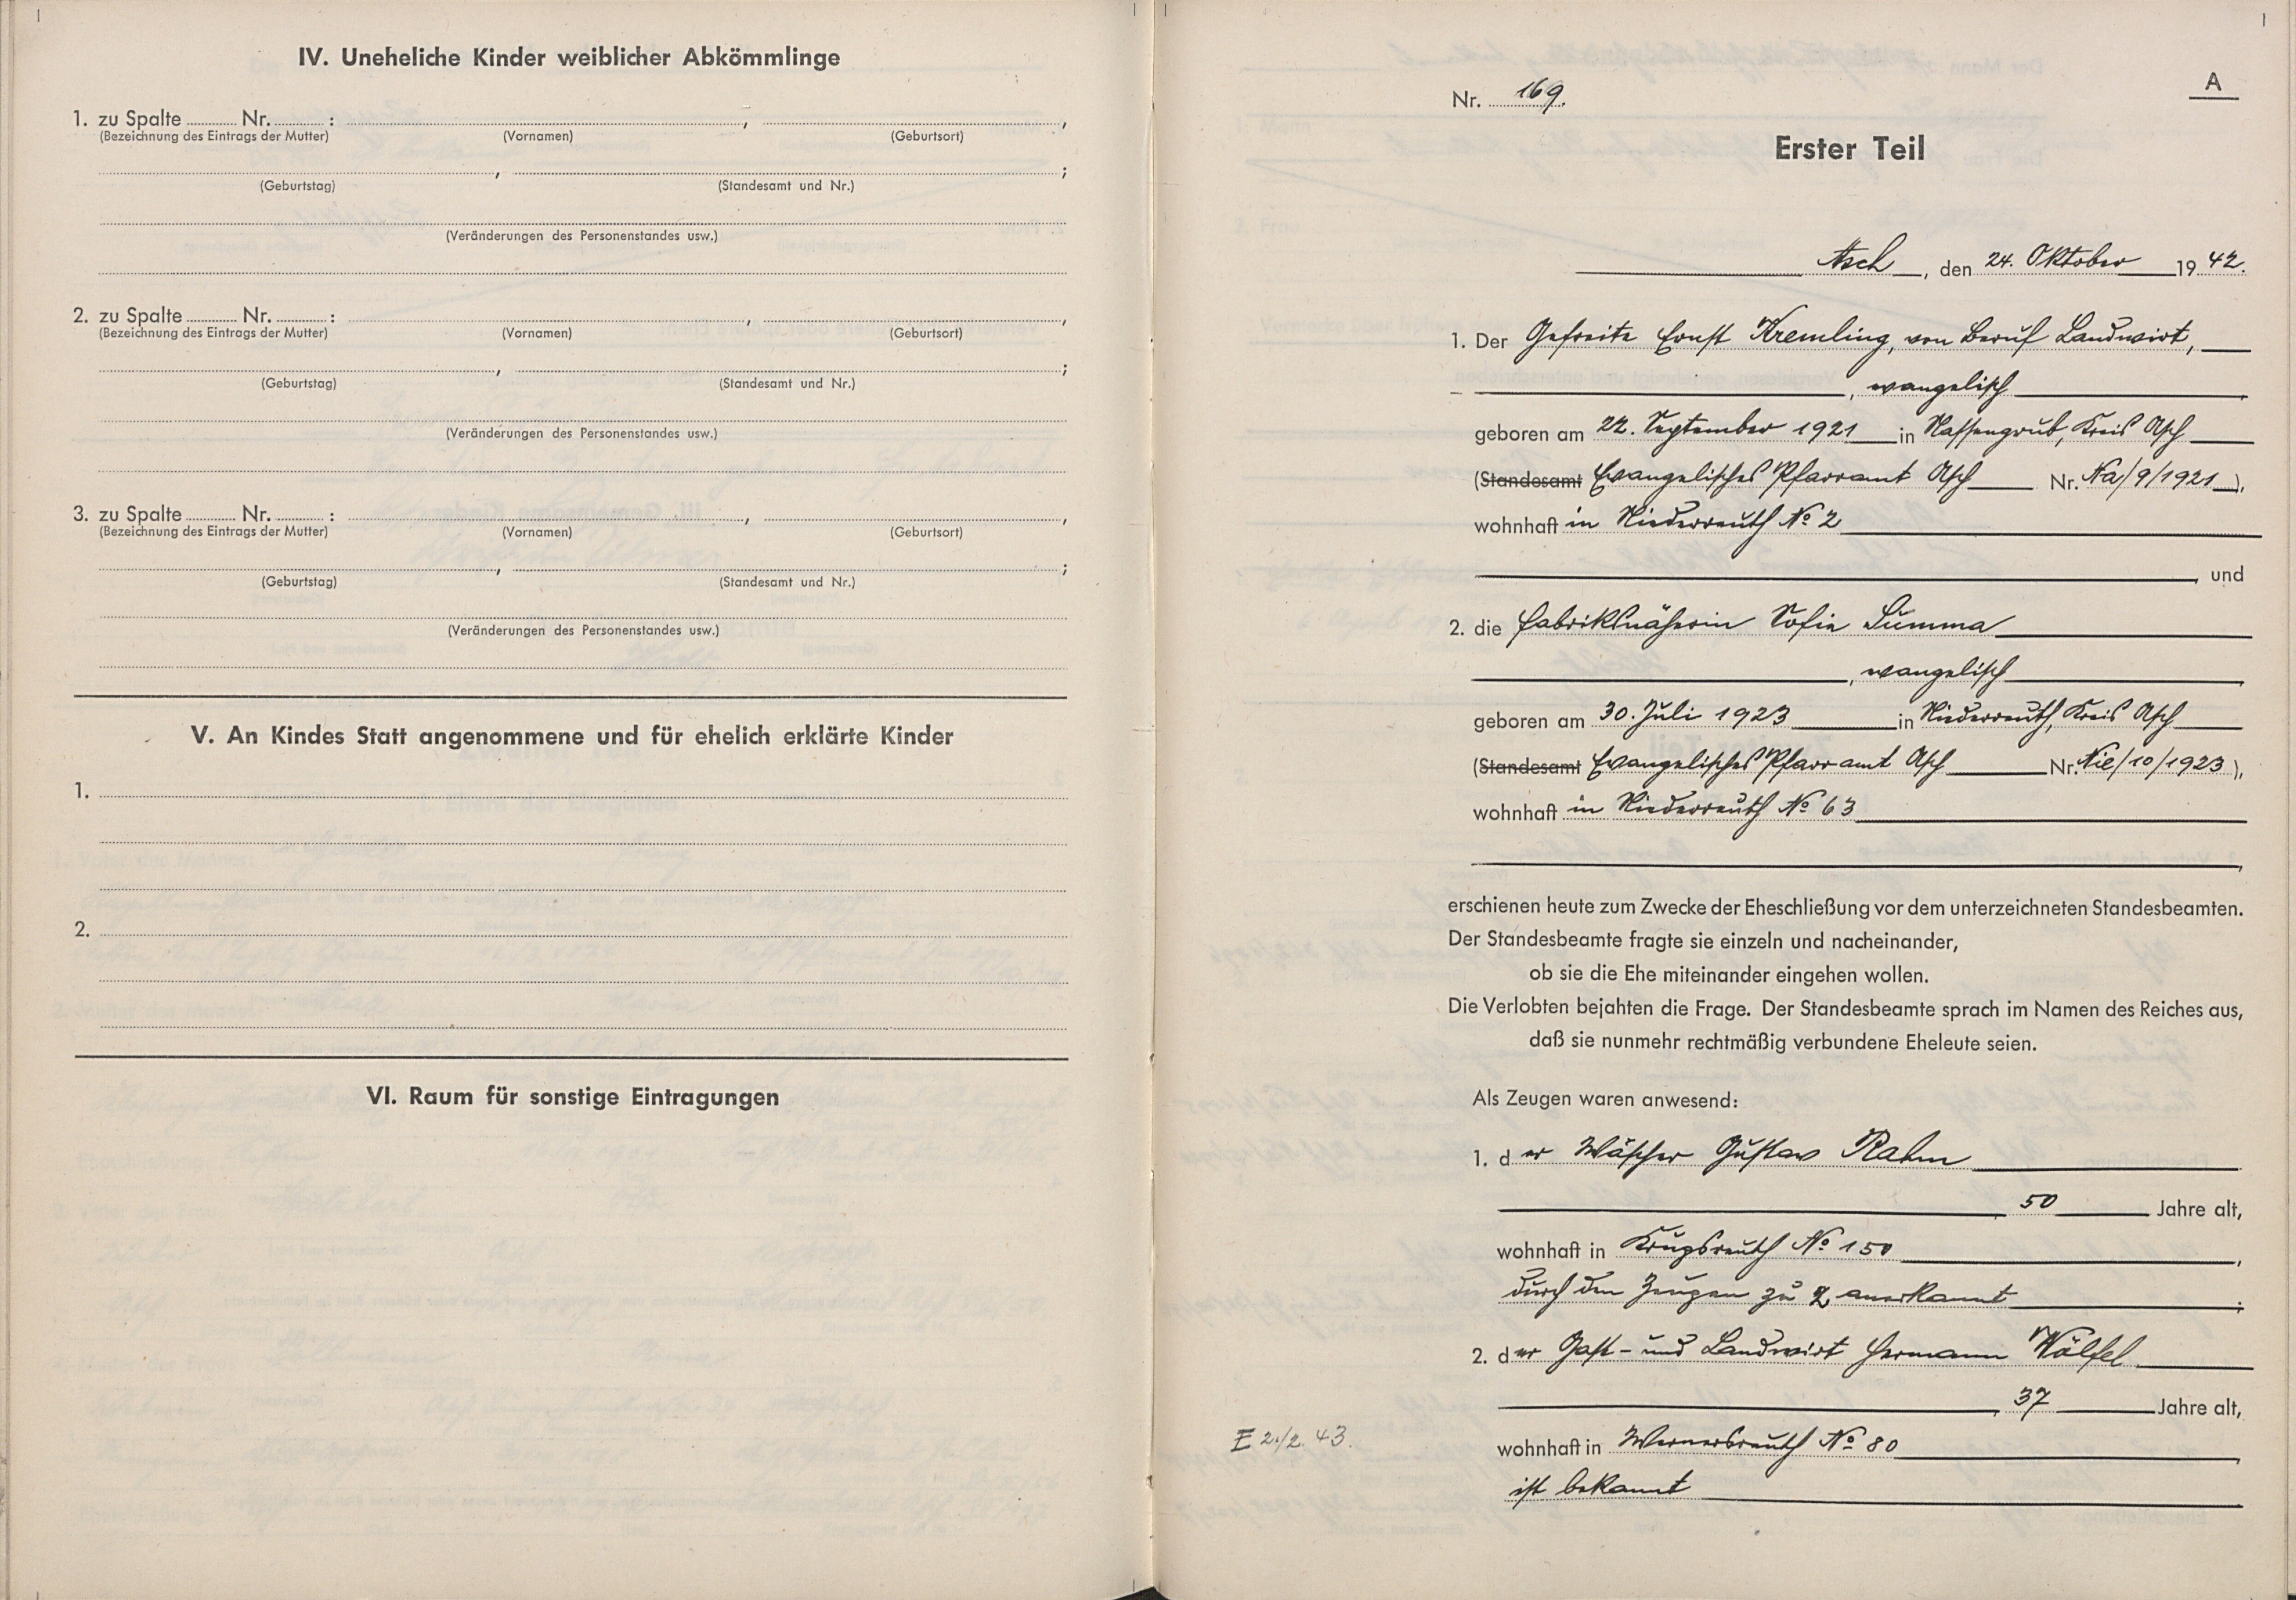 IV. Uneheliche Kinder weiblicher Abkömmlinge
1. zu Spalte ........ Nr. ........ : ........, ........,
(Bezeichnung des Eintrags der Mutter) (Vornamen) (Geburtsort)
........, ........;
(Geburtstag) (Standesamt und Nr.)
(Veränderungen des Personenstandes usw.)
2. zu Spalte ........ Nr. ........ : ........, ........,
(Bezeichnung des Eintrags der Mutter) (Vornamen) (Geburtsort)
........, ........;
(Geburtstag) (Standesamt und Nr.)
(Veränderungen des Personenstandes usw.)
3. zu Spalte ........ Nr. ........ : ........, ........,
(Bezeichnung des Eintrags der Mutter) (Vornamen) (Geburtsort)
........, ........;
(Geburtstag) (Standesamt und Nr.)
(Veränderungen des Personenstandes usw.)
V. An Kindes Statt angenommene und für ehelich erklärte Kinder
1.
2.
VI. Raum für sonstige Eintragungen
A
Nr. 169.
Erster Teil
Asch, den 24. Oktober 1942.
1. Der Gefreite Ernst Kremling, von Beruf Landwirt,
, evangelisch,
geboren am 22. September 1921 in Nassengrub, Kreis Asch
(Standesamt Evangelisches Pfarramt Asch Nr. Na/9/1921),
wohnhaft in Niederreuth No 2
, und
2. die Fabriksnäherin Sofie Summa
, evangelisch,
geboren am 30. Juli 1923 in Niederreuth, Kreis Asch
(Standesamt Evangelisches Pfarramt Asch Nr. Nie/10/1923),
wohnhaft in Niederreuth No 63
,
erschienen heute zum Zwecke der Eheschließung vor dem unterzeichneten Standesbeamten.
Der Standesbeamte fragte sie einzeln und nacheinander,
ob sie die Ehe miteinander eingehen wollen.
Die Verlobten bejahten die Frage. Der Standesbeamte sprach im Namen des Reiches aus,
daß sie nunmehr rechtmäßig verbundene Eheleute seien.
Als Zeugen waren anwesend:
1. der Wäscher Gustav Rahm
, 50 Jahre alt,
wohnhaft in Krugsreuth No 150,
durch den Zeugen zu 2 anerkannt;
2. der Gast- und Landwirt Hermann Wölfel
, 37 Jahre alt,
E 2./2. 43.
wohnhaft in Wernersreuth No 80,
ist bekannt